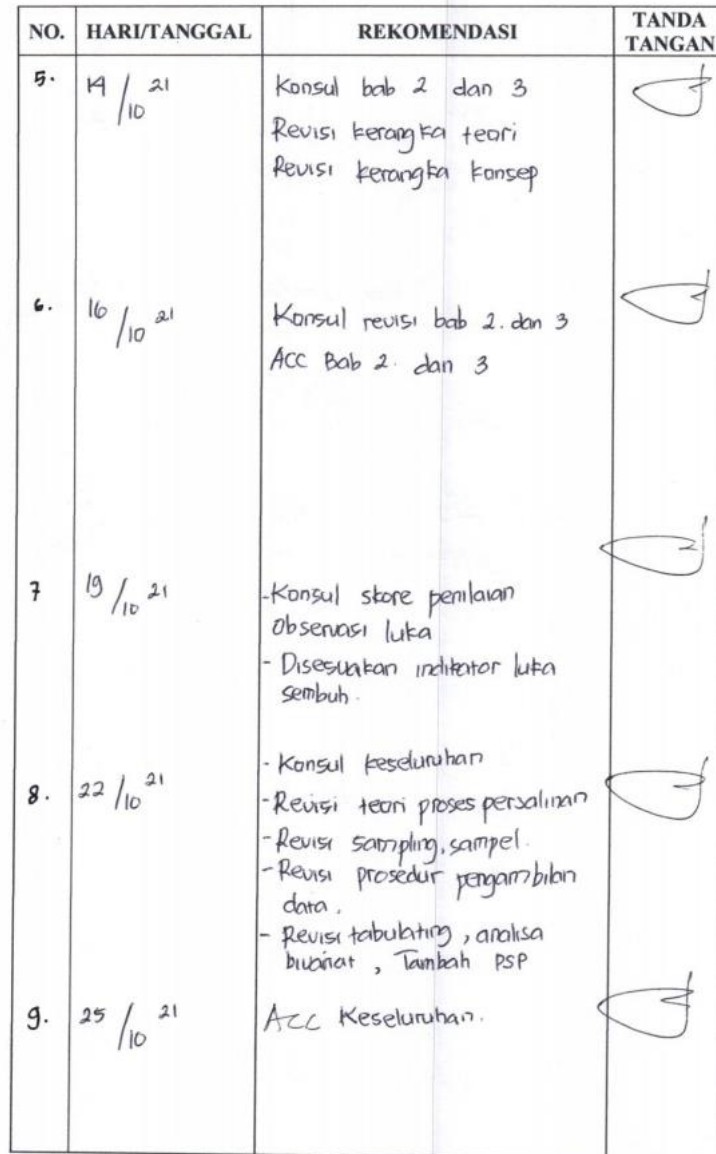 NO. HARI/TANGGAL REKOMENDASI TANDA TANGAN
5. 14/10 21 Konsul bab 2 dan 3
Revisi kerangka teori
Revisi kerangka konsep
6. 16/10 21 Konsul revisi bab 2. dan 3
ACC Bab 2. dan 3
7 19/10 21 -Konsul skore penilaian
Observasi luka
- Disesuaikan indikator luka
sembuh.
- Konsul keseluruhan
8. 22/10 21 -Revisi teori proses persalinan
-Revisi sampling, sampel.
-Revisi prosedur pengambilan
data.
- Revisi tabulating, analisa
bivariat, Tambah PSP
9. 25/10 21 Acc Keseluruhan.